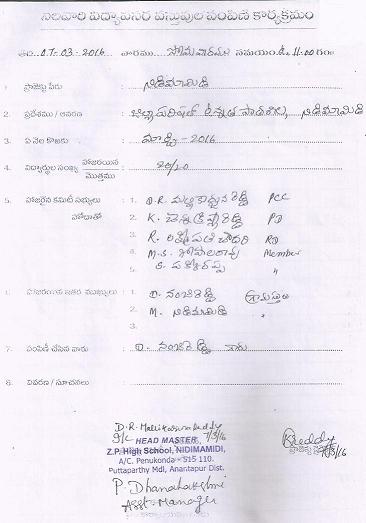 నెలవారి విద్యావసర వస్తువుల పంపిణి కార్యక్రమం
తేది: 07-03-2016 వారము సోమవారము సమయం ఉ. 11-00 గం॥
1. ప్రాజెక్టు పేరు : నిడిమామిడి
2. ప్రదేశము / ఆవరణ : జిల్లా పరిషత్ ఉన్నత పాఠశాల, నిడిమామిడి
3. ఏ నెల కొఱకు : మార్చి - 2016
4. విద్యార్థుల సంఖ్య హాజరయిన మొత్తము : 20/20
5. హాజరైన కమిటీ సభ్యులు హోదాతో : 1. D.R. మల్లికార్జున రెడ్డి PCC
2. K. చెన్నక్రిష్ణారెడ్డి PD
3. R. లక్ష్మీపతి చౌదరి RD
4. M.S. గోపాలరావు Member
5. S. "
6. హాజరయిన ఇతర ముఖ్యులు : 1. D. నంజిరెడ్డి గ్రామస్తులు
2. M. నిడిమామిడి "
3.
7. పంపిణీ చేసిన వారు : D. నంజిరెడ్డి గారు
8. వివరణ / సూచనలు :
D.R. Mallikarjuna Reddy
I/c HEAD MASTER 7/3/16
Z.P. High School, NIDIMAMIDI,
A/C. Penukonda - 515 110.
Puttaparthy Mdl, Anantapur Dist.
P. Dhanalakshmi
Asst Manager
Reddy
7/3/16